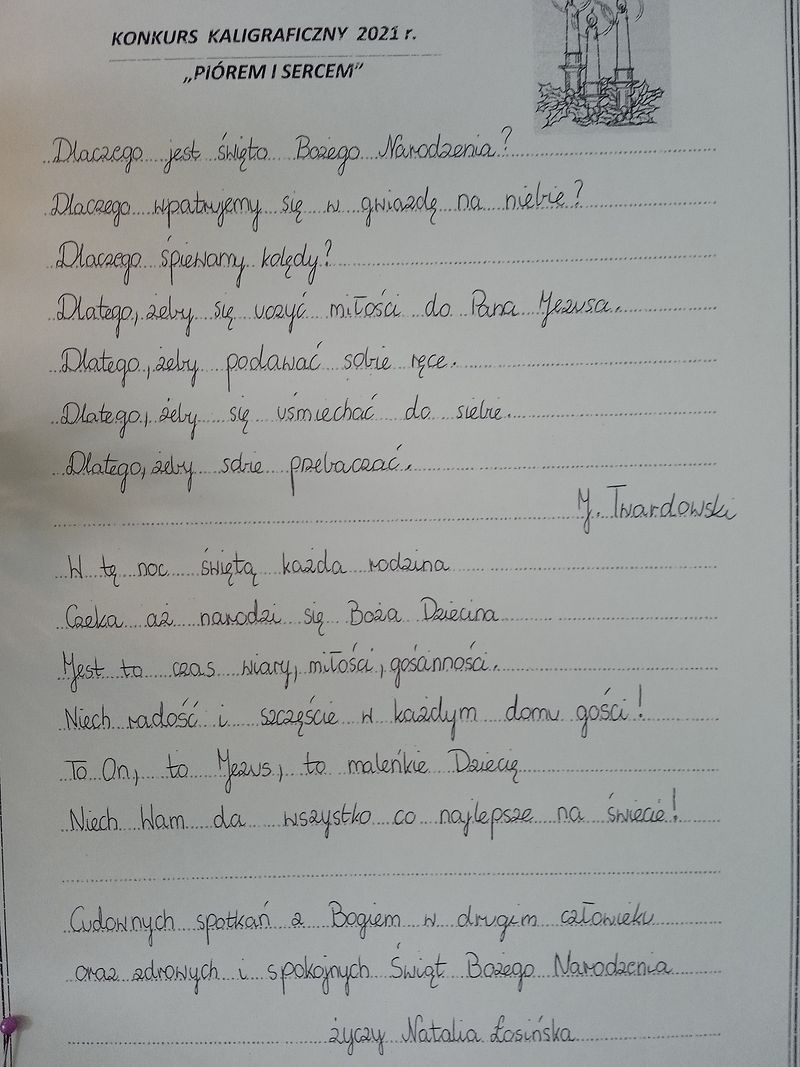 KONKURS KALIGRAFICZNY 2021 r.
„PIÓREM I SERCEM"
Dlaczego jest święto Bożego Narodzenia?
Dlaczego wpatrujemy się w gwiazdę na niebie?
Dlaczego śpiewamy kolędy?
Dlatego, żeby się uczyć miłości do Pana Jezusa.
Dlatego, żeby podawać sobie ręce.
Dlatego, żeby się uśmiechać do siebie.
Dlatego, żeby sobie przebaczać.
J. Twardowski
W tę noc świętą każda rodzina
Czeka aż narodzi się Boża Dziecina
Jest to czas wiary, miłości, gościnności.
Niech radość i szczęście w każdym domu gości!
To On, to Jezus, to maleńkie Dziecię
Niech Wam da wszystko co najlepsze na świecie!
Cudownych spotkań z Bogiem w drugim człowieku
oraz zdrowych i spokojnych Świąt Bożego Narodzenia
życzy Natalia Łosińska